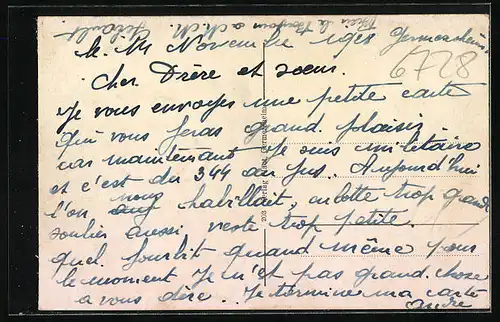 le 14 Novembre 1928 Germersheim
6728
Cher Frère et soeur.
Je vous envoyes une petite carte
qui vous feras grand plaisir.
car maintenant je suis militaire
et c'est du 344 au jus. Aujourd'hui
l'on nous habillait, culotte trop grande
soulier aussi veste trop petite.
quel fourbit quand même pour
le moment Je n'et pas grand chose
a vous dire. Je termine ma carte
André